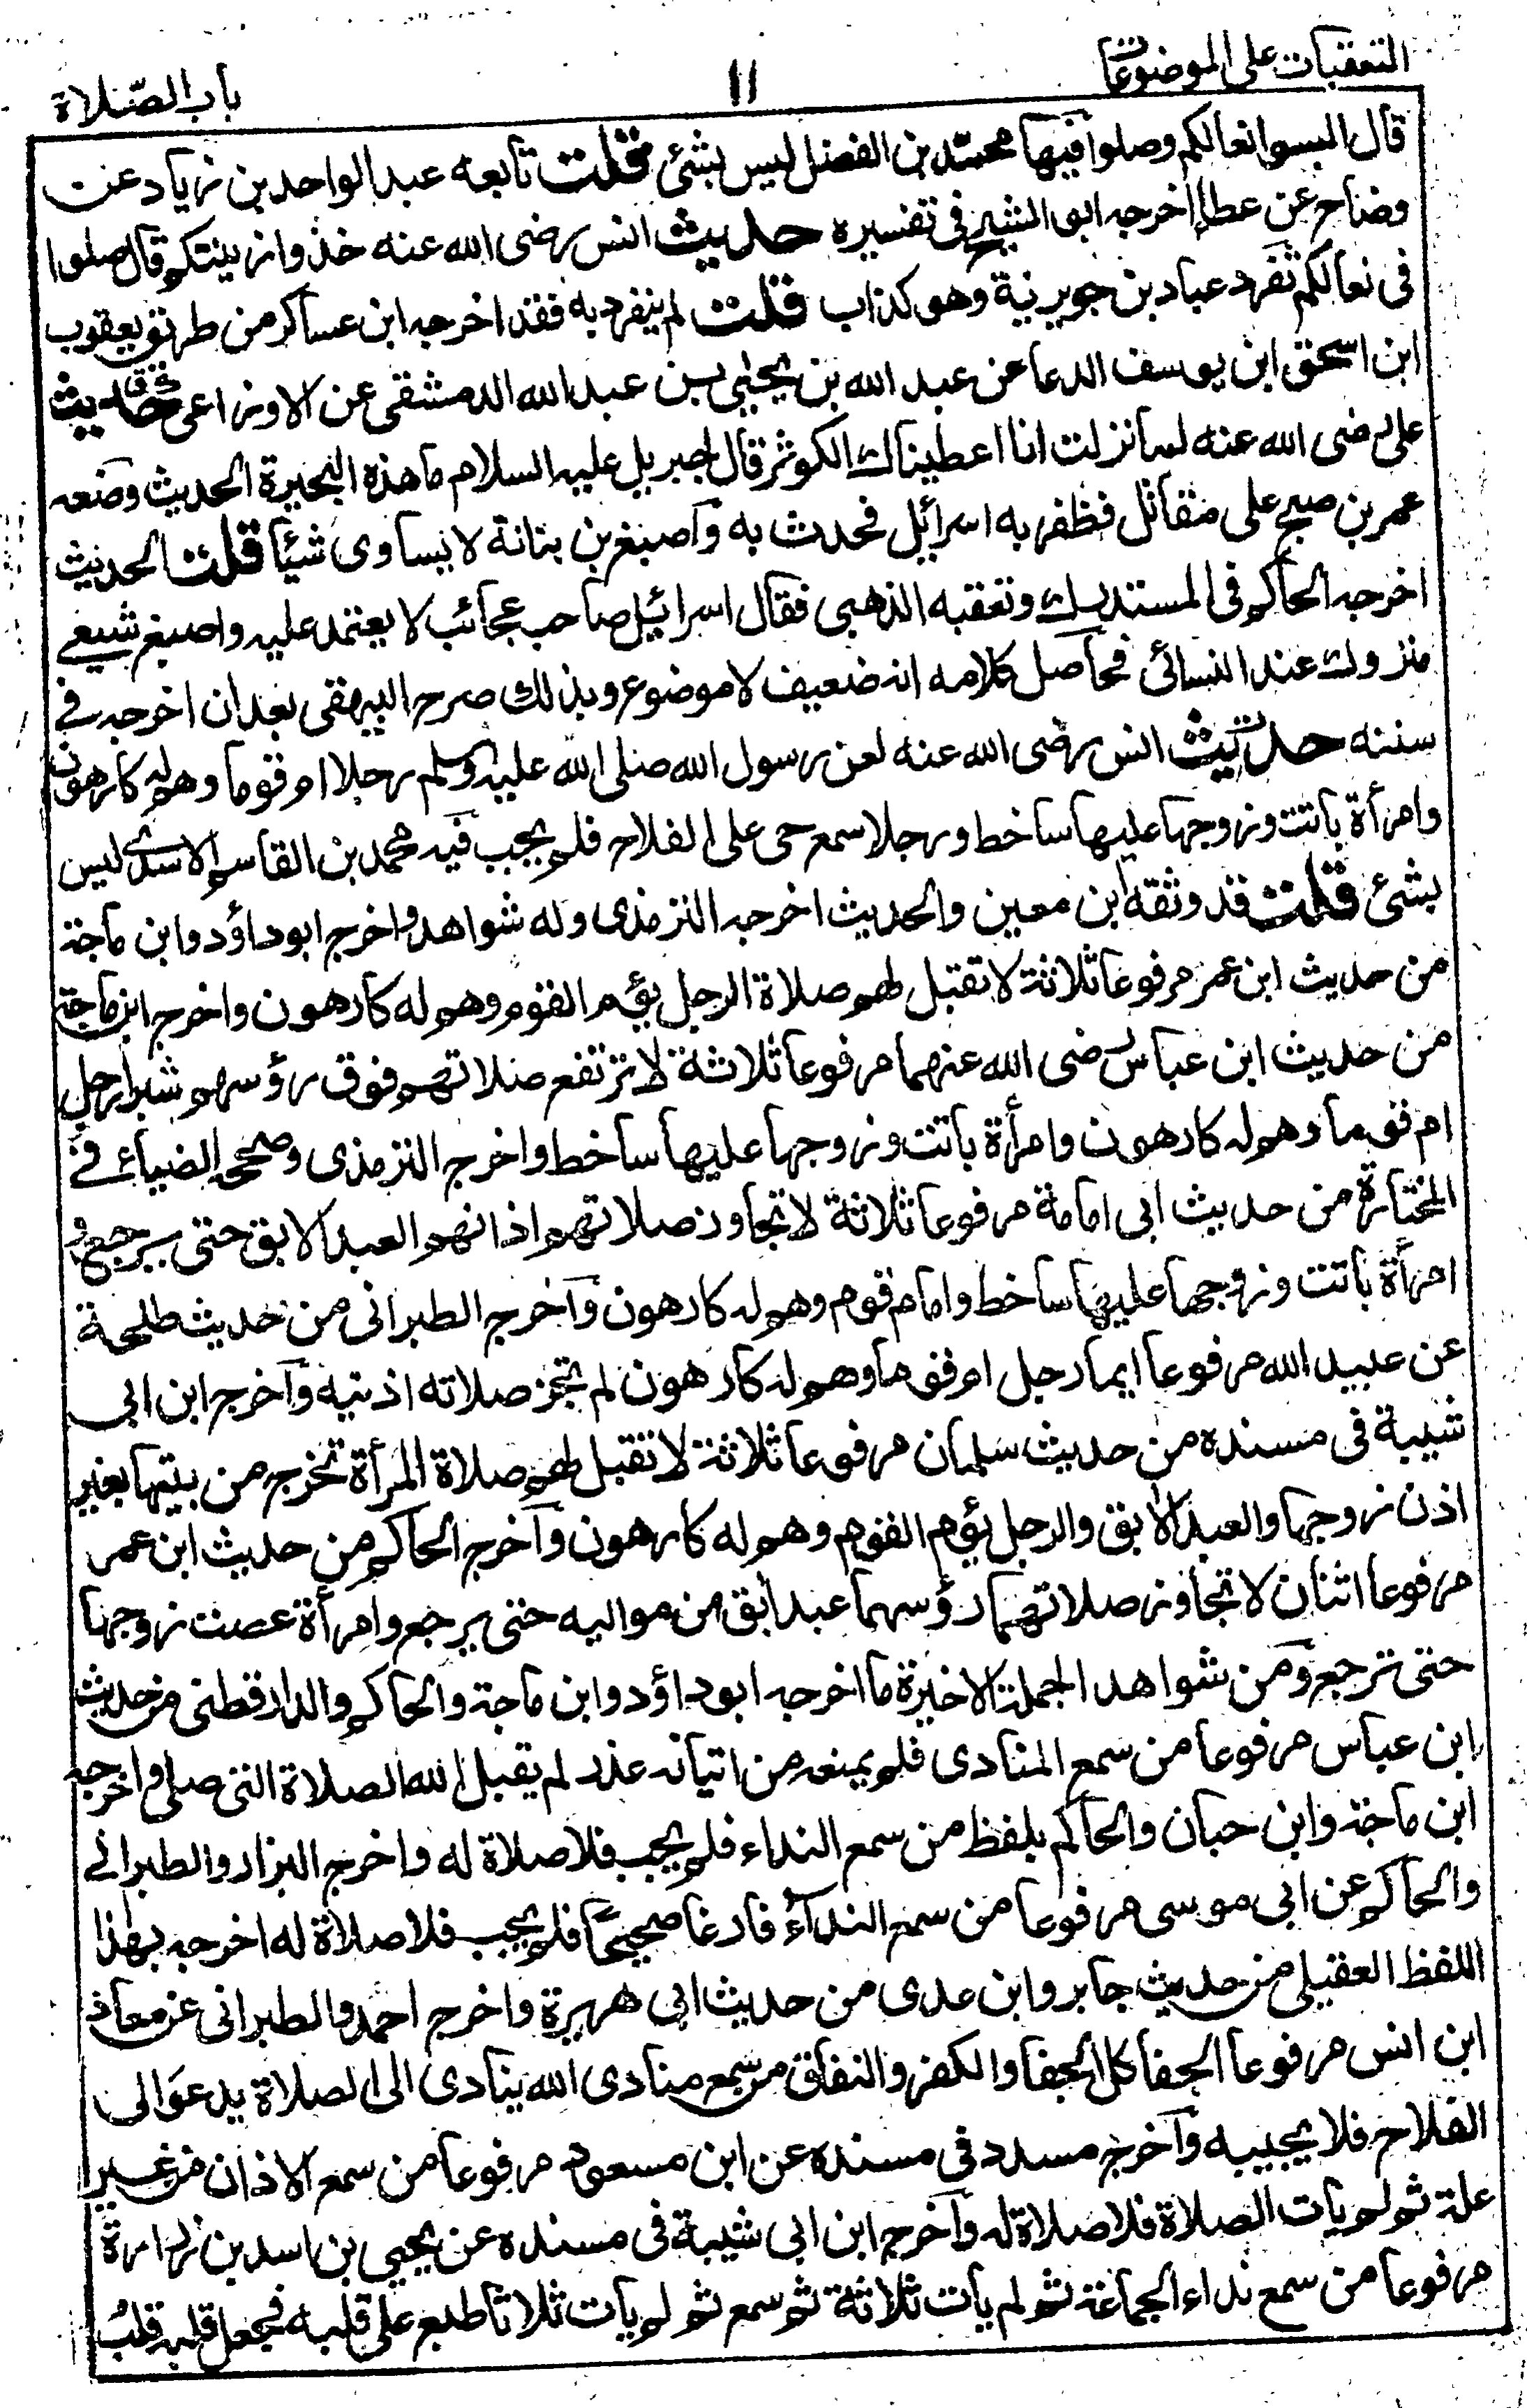 التعقبات على الموضوعات
١١
باب الصّلاة
قال البسوا نعالكم وصلوا فيها محمّد بن الفضل ليس بشئ قلت تابعه عبد الواحد بن زياد عن
وضاح عن عطاء اخرجه ابو الشيخ في تفسيره حديث انس رضى الله عنه خذوا زينتكم قال صلوا
فى نعالكم تفرد عباد بن جويرية وهو كذاب قلت لم ينفرد به فقد اخرجه ابن عساكر من طريق يعقوب
ابن اسحق ابن يوسف الدعا عن عبد الله بن يحيى بن عبد الله الدمشقى عن الاوزاعى حديث
على رضى الله عنه لما نزلت انا اعطيناك الكوثر قال لجبريل عليه السلام ما هذه النحيرة الحديث وضعه
عمر بن صبح على مقاتل فظفر به اسرائيل فحدث به واصبغ بن بتانة لا يساوى شيئا قلت الحديث
اخرجه الحاكم فى المستدرك وتعقبه الذهبى فقال اسرائيل صاحب عجائب لا يعتمد عليه واصبغ شيعي
متروك عند النسائى فحاصل كلامه انه ضعيف لا موضوع وبذلك صرح البيهقى بعد ان اخرجه فى
سننه حديث انس رضى الله عنه لعن رسول الله صلى الله عليه وسلم رجلا ام قوما وهم له كارهون
وامرأة باتت وزوجها عليها ساخط ورجلا سمع حى على الفلاح فلم يجب فيه محمد بن القاسم الاسدى ليس
بشئ قلت قد وثقه ابن معين والحديث اخرجه الترمذى وله شواهد واخرج ابو داؤد وابن ماجة
من حديث ابن عمر مرفوعا ثلاثة لا تقبل لهم صلاة الرجل يؤم القوم وهم له كارهون واخرج ابن ماجة
من حديث ابن عباس رضى الله عنهما مرفوعا ثلاثة لا ترتفع صلاتهم فوق رؤسهم شبرا رجل
ام قوما وهم له كارهون وامرأة باتت وزوجها عليها ساخط واخرج الترمذى وصححه الضياء فى
المختارة من حديث ابى امامة مرفوعا ثلاثة لا تجاوز صلاتهم اذانهم العبد الابق حتى يرجع و
امرأة باتت وزوجها عليها ساخط وامام قوم وهم له كارهون وآخرج الطبرانى من حديث طلحة
عن عبيد الله مرفوعا ايما رجل ام قوما وهم له كارهون لم تجز صلاته اذنيه وآخرج ابن ابى
شيبة فى مسنده من حديث سلمان مرفوعا ثلاثة لا تقبل لهم صلاة المرأة تخرج من بيتها بغير
اذن زوجها والعبد الابق والرجل يؤم القوم وهم له كارهون وآخرج الحاكم من حديث ابن عمر
مرفوعا اثنان لا تجاوز صلاتهما رؤسهما عبد ابق من مواليه حتى يرجع وامرأة عصت زوجها
حتى ترجع ومن شواهد الجملة الاخيرة ما اخرجه ابو داؤد وابن ماجة والحاكم والدارقطنى من حديث
ابن عباس مرفوعا من سمع المنادى فلم يمنعه من اتيانه عذر لم يقبل الله الصلاة التى صلى واخرجه
ابن ماجة وابن حبان والحاكم بلفظ من سمع النداء فلم يجب فلا صلاة له واخرج البزار والطبرانى
والحاكم عن ابى موسى مرفوعا من سمع النداء فارغا صحيحا فلم يجب فلا صلاة له اخرجه بهذا
اللفظ العقيلى من حديث جابر وابن عدى من حديث ابى هريرة واخرج احمد والطبرانى عن معاذ
ابن انس مرفوعا الجفا كل الجفا والكفر والنفاق من سمع منادى الله ينادى الى الصلاة يدعو الى
الفلاح فلا يجيبه وآخرج مسدد فى مسنده عن ابن مسعود مرفوعا من سمع الاذان من غير
علة ثم لم يات الصلاة فلا صلاة له وآخرج ابن ابى شيبة فى مسنده عن يحيى بن اسد بن زرارة
مرفوعا من سمع نداء الجماعة ثم لم يات ثلاثة ثم سمع ثم لم يات ثلاثا طبع على قلبه فيجعل قلبه قلب